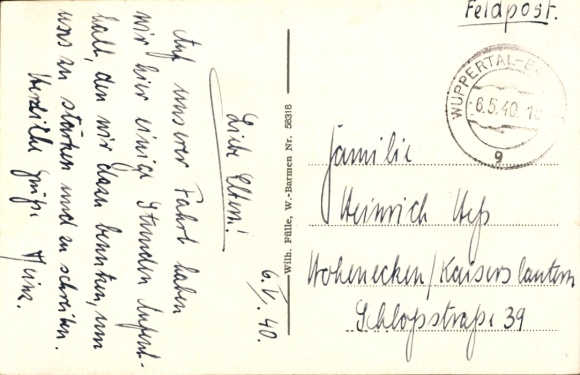 Feldpost.
WUPPERTAL-E
6.5.40. 18
g
6. V. 40.
Liebe Eltern!
Auf unserer Fahrt haben
wir hier einige Stunden Aufent-
halt, den wir dazu benutzen, um
uns zu stärken und zu schreiben.
Herzliche Grüße Heinz.
Wilh. Fülle, W.-Barmen Nr. 58318
Familie
Heinrich Heß
Hohenecken/Kaiserslautern
Schloßstraße 39